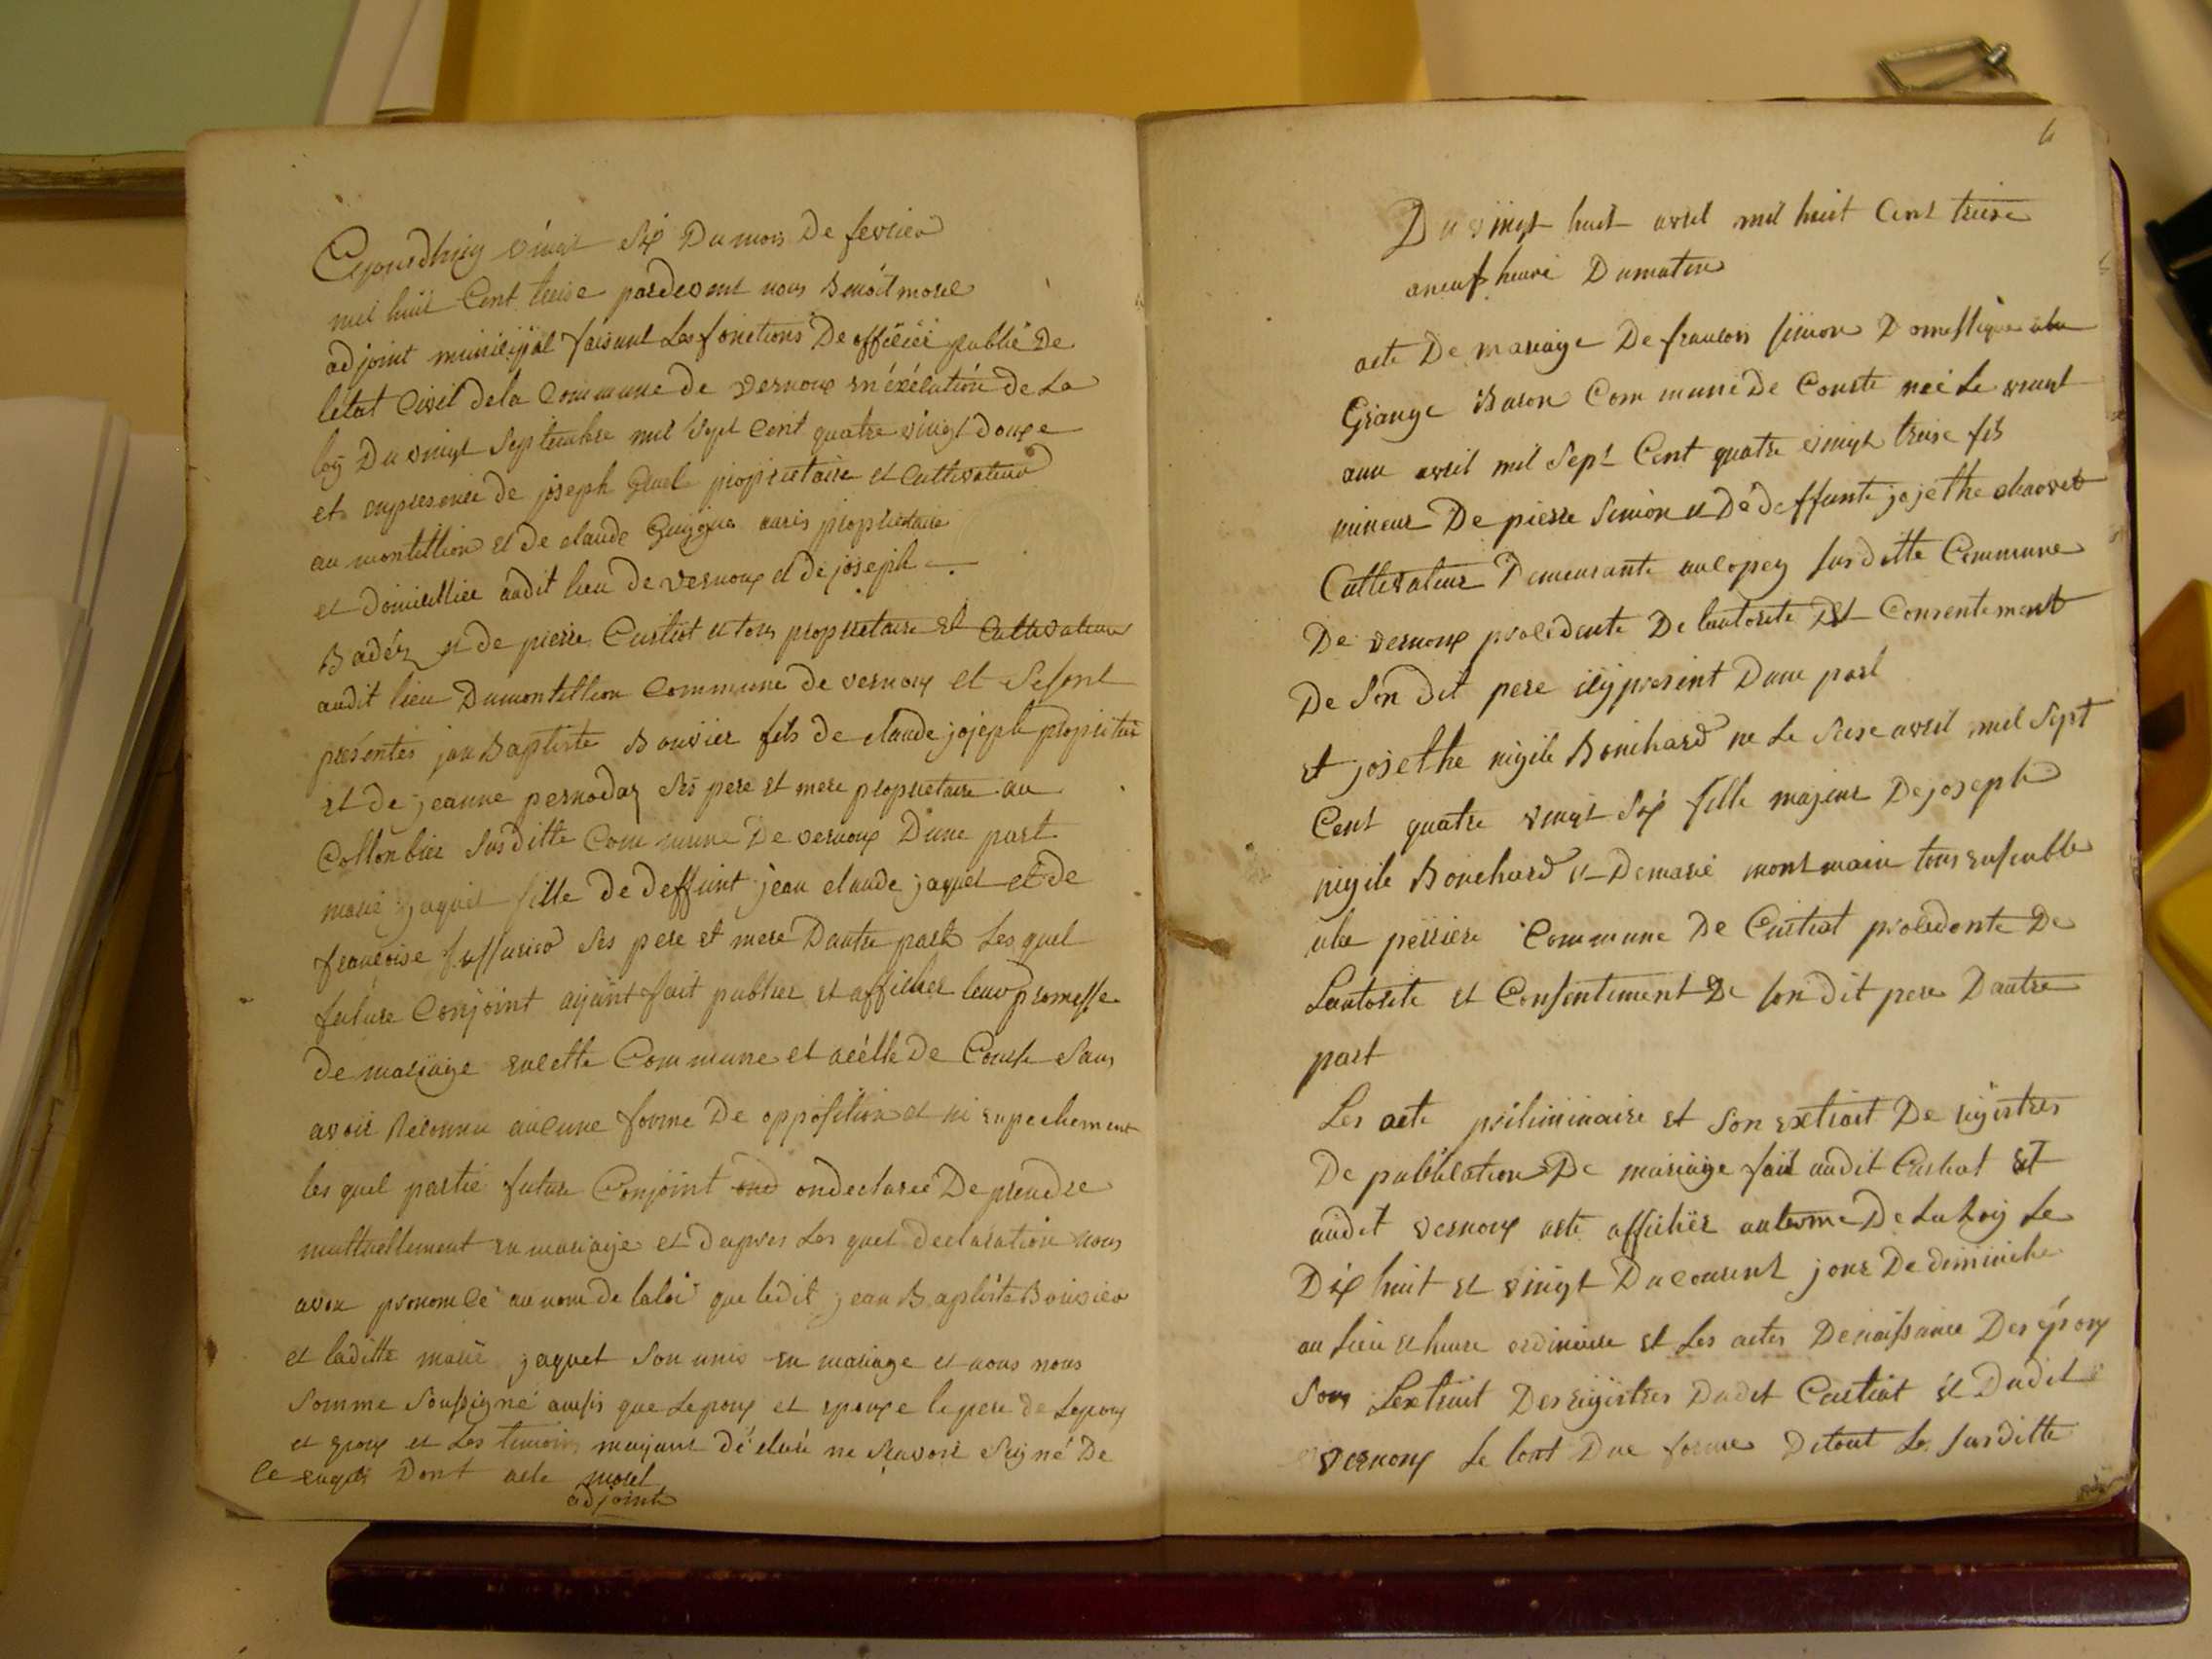 Cejourdhuy vingt six Du mois De fevrier
mil huit Cent treise pardevent nous Benoit morel
adjoint municipal faisant Les fonctions De officier public De
létat Civil dela Commune de vernoux en éxécution de La
loy Du vingt Septembre mil Sept Cent quatre vingt douze
et en presence de joseph propriétaire et Cultivateur
au montillion et de claude propriétaire
et Domicillier audit lieu de vernoux et de joseph
et de pierre Custiot et tous proprietaire et Cultivateur
audit lieu Dumontillion Commune de vernoux et Sesont
présentés jean Baptiste Bouvier fils de claude jojeph propritair
et de jeanne pernodas Ses pere et mere proprietaire au
Collonbier Susditte Commune De vernoux D'une part
marie jaquet fille de deffunt jean claude jaquet et de
francoise Ses pere et mere Dautre part Les quel
future Conjoint ayant fait publier et afficher leur promesse
de mariage en cette Commune et a célle De Couste Sans
avoir Reconnu aucune forme De opposition et ni enpechement
les quel partié future Conjoint ond ondeclareé De prendre
muttuellement en mariage et dapres Les quel declaration nous
avon prononcé au nom de laloi que ledit jean Baptiste Bouvier
et laditte marie jaquet Son unis en mariage et nous nous
Somme Soussigné ausis que Lepoux et epouxe le pere de Lepoux
et epoux et Les temoins mayant dé claré ne Scavoir Signé De
ce enquis Dont acte morel
adjoint
4
Du vingt huit avril mil huit Cent treise
aneuf heure Dumatin
acte De mariage De francois simon Domestique ala
Grange Bason Commune De Couste neé Le vingt
avril mil Sept Cent quatre vingt treise fils
mineur De pierre Simon et Dé deffunte jojethe chaovet
Cultivateur Demeurante aulopey Sus ditte Commune
De vernoux procedente De lautorite Et Consentement
De Son dit pere icy present Dune part
Et josethe nigile Bouchard ne Le Seise avril mil Sept
Cent quatre vingt Six fille majeur De joseph
nigile Bouchard et De marie montmain tous ensemble
ala perriere Commune De Custiat procedente De
Lautorite et Consentement De son dit pere Dautre
part
Les acte préliminaire et Son extrait De registres
De publication De mariage fait audit Custiat et
audit vernoux acte afficher auterme De La Loy Le
Dix huit et vingt Ducourent jour De diminche
au lieu et heure ordinaire et Les actes Denaissance Des époux
Sous Lextrait Des registres Dudit Custiat et Dudit
vernoux Le tout Due forme Detout Le Susditte